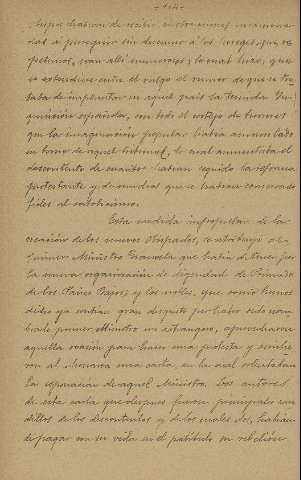 - 114 -
habian de recibir instrucciones encamina-
das á perseguir sin descanso á los herejes, que, re-
petimos, eran alli numerosos; lo cual hizo, que
se extendiera entre el vulgo el rumor de que se tra-
taba de implantar en aquel país la temida In-
quisición española, con todo el cortejo de horrores
que la imaginación popular habia acumulado
en torno de aquel tribunal, lo cual aumentaba el
descontento de cuantos habian seguido la reforma
protestante y de muchos que se habian conservado
fieles al catolicismo.
Esta medida impopular de la
creación de los nuevos Obispados, se atribuyó al
primer Ministro Granvela que habia de tener por
la nueva organización la dignidad de Primado
de los Paises Bajos; y los nobles, que como hemos
dicho ya sentian gran disgusto por haber sido nom-
brado primer Ministro un extrangero, aprovecharon
aquella ocasión para hacer una protesta y escribie-
ron al Monarca una carta, en la cual solicitaban
la separación de aquel Ministro. Los autores
de esta carta que despues fueron principales cau-
dillos de los descontentos y de los cuales dos, habian
de pagar con su vida en el patíbulo su rebelión